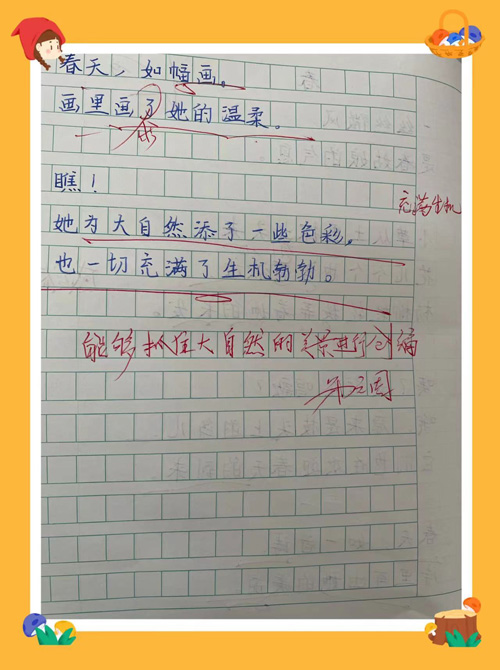 春天，如幅画。
画里画了她的温柔。
瞧！
充满生机
她为大自然添了一些色彩，
也一切充满了生机勃勃。
能够抓住大自然的美景进行创编